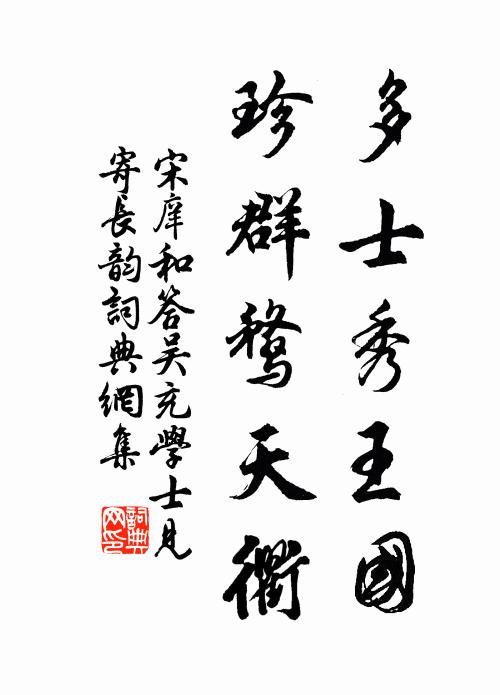 多士秀王國
珍群鶩天衢
宋庠和答吴充學士見
寄長韵詞典網集
詞典
网印